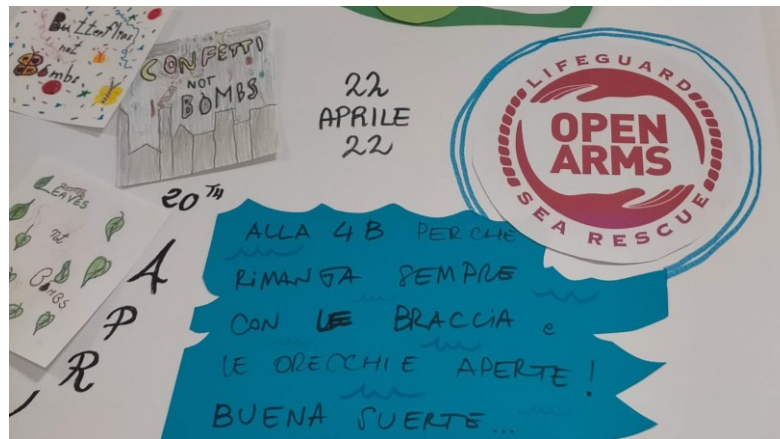 Butterflies
not
Bombs
CONFETTI
NOT
BOMBS
22
APRILE
22
LIFEGUARD
OPEN
ARMS
SEA RESCUE
LEAVES
not
BOMBS
20TH
APR
ALLA 4B PERCHE
RIMANGA SEMPRE
CON LE BRACCIA e
LE ORECCHIE APERTE!
BUENA SUERTE...